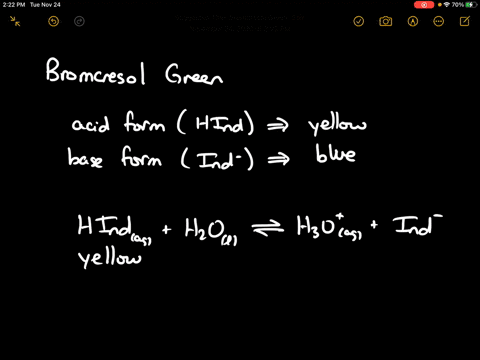 2:22 PM Tue Nov 24
70%
Bromcresol Green
acid form (HInd) ⇒ yellow
base form (Ind⁻) ⇒ blue
HInd(aq) + H₂O(l) ⇌ H₃O⁺(aq) + Ind⁻
yellow